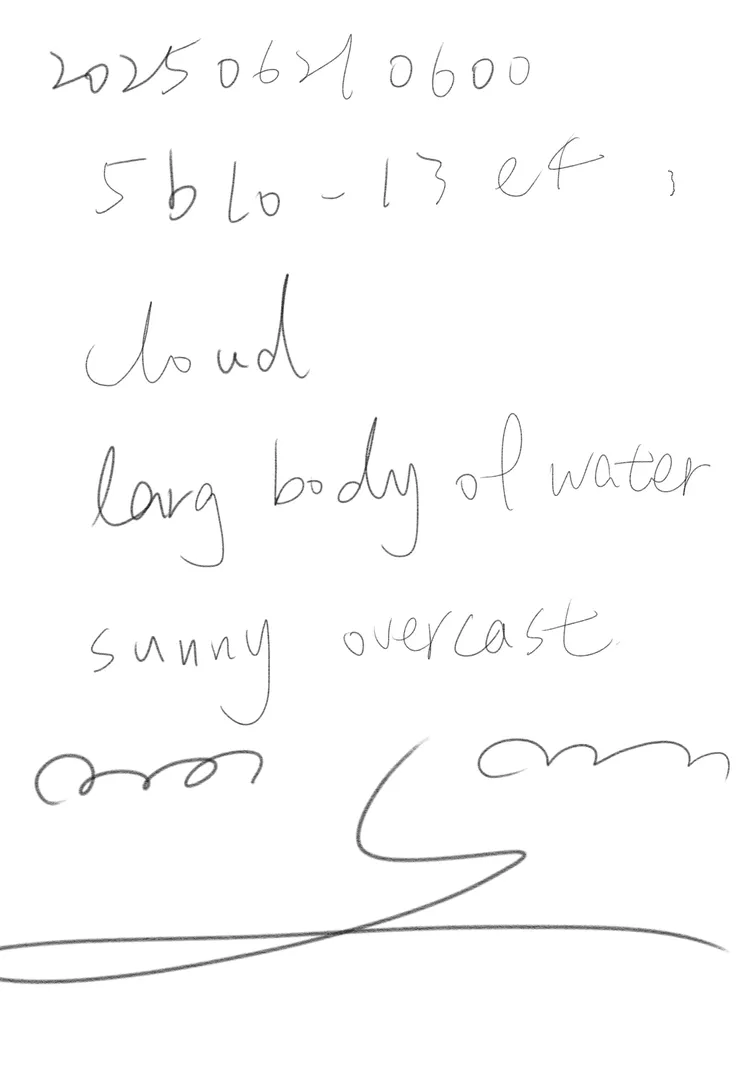 20250621 0600
5b10-13 et
cloud
larg body of water
sunny overcast